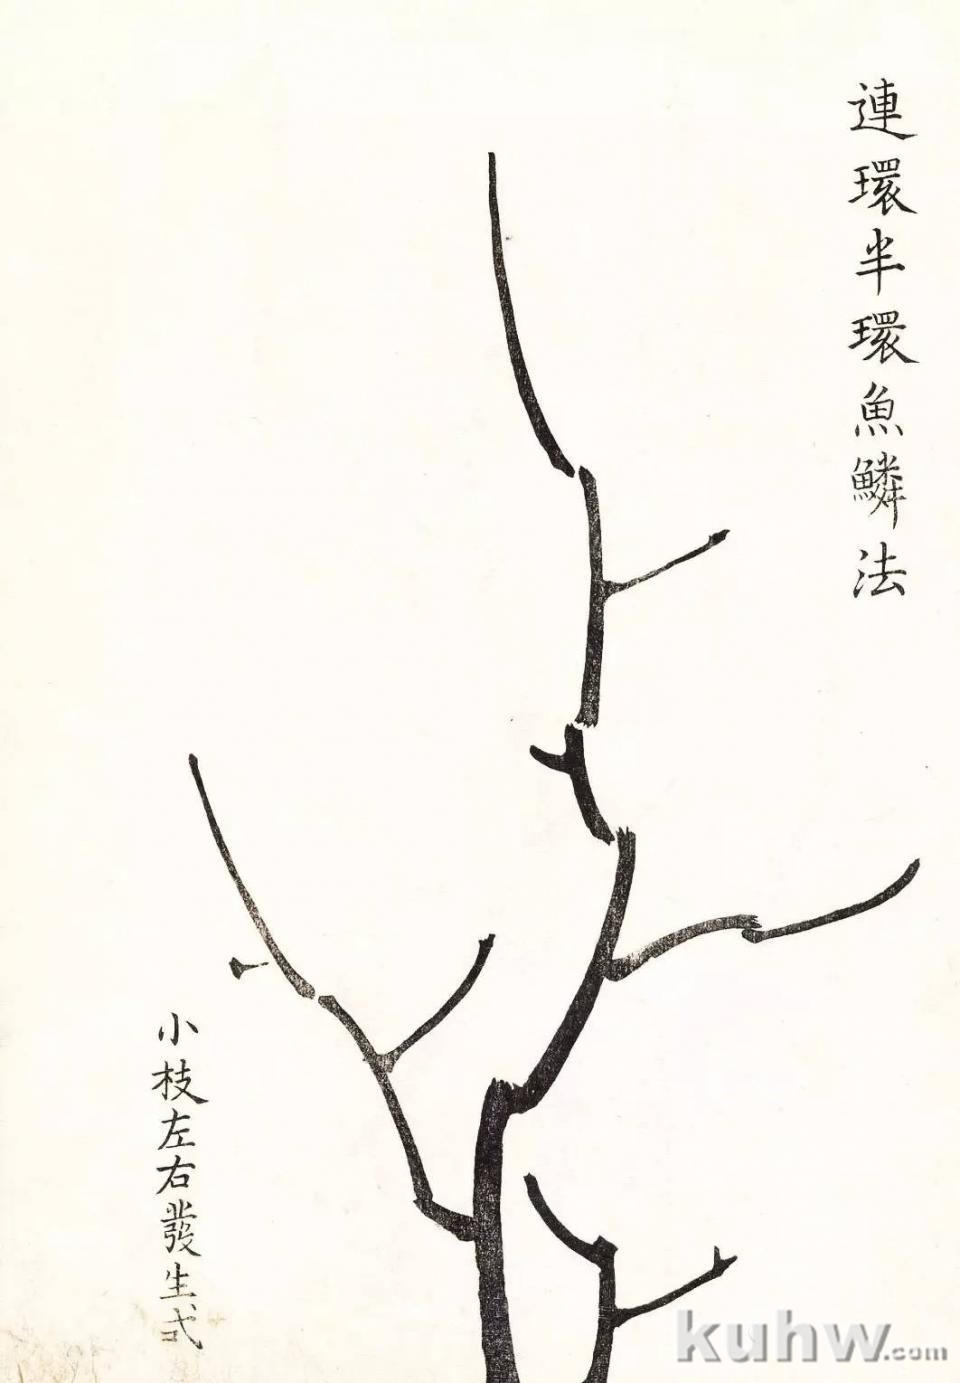 連環半環魚鱗法
小枝左右發生式
kuhw.com